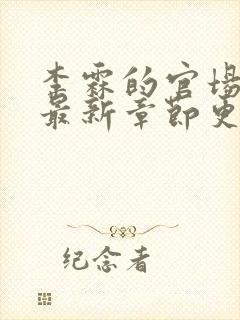 李霖的官场
最新章节更
纪念者